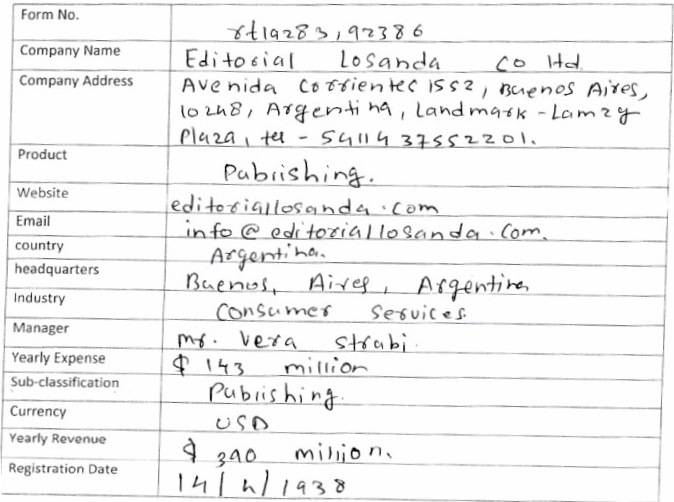 Form No. rt19283,92386
Company Name Editorial Losanda co ltd.
Company Address Avenida Corrientes 1552, Buenos Aires,
10248, Argentina, Landmark - Lamzy
Plaza, tel - 5411437552201.
Product Publishing.
Website editoriallosanda.com
Email info@editoriallosanda.com.
country Argentina.
headquarters Buenos, Aires, Argentina
Industry Consumer Services.
Manager mr. Vera Strabi.
Yearly Expense $ 143 million
Sub-classification Publishing.
Currency USD
Yearly Revenue $ 390 million.
Registration Date 14/4/1938